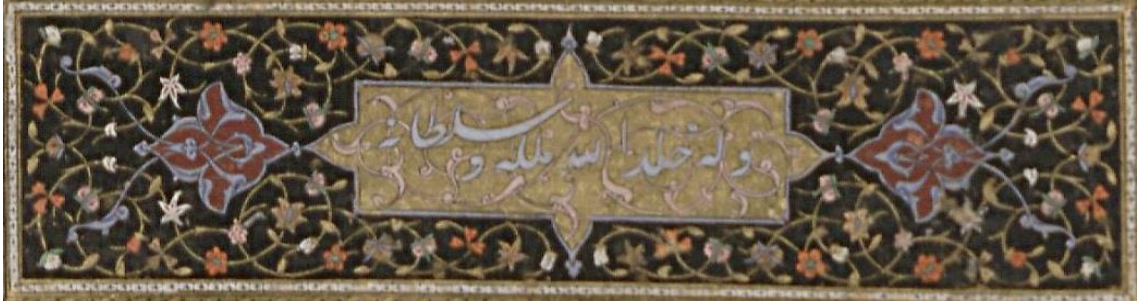 وله خلد الله ملكه و سلطانه